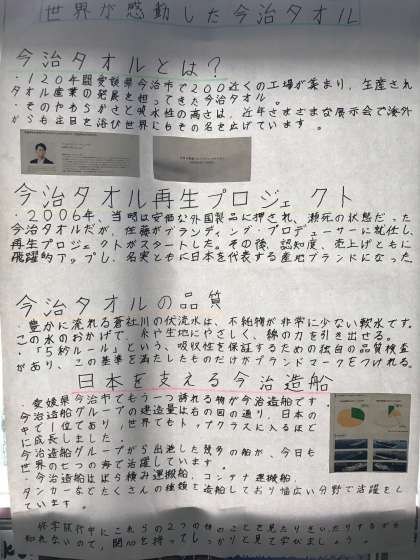 世界が感動した今治タオル
今治タオルとは?
・120年間愛媛県今治市で200近くの工場が集まり、生産され
タオル産業の発展を担ってきた今治タオル。
・そのやわらかさと吸水性の高さは、近年さまざまな展示会で海外
からも注目を浴び世界にもその名を広げています。
今治タオル再生プロジェクト
・2006年、当時は安価な外国製品に押され、瀕死の状態だった
今治タオルだが、佐藤がブランディング・プロデューサーに就任し、
再生プロジェクトがスタートした。その後、認知度、売上げともに
飛躍的アップし、名実ともに日本を代表する産地ブランドになった。
今治タオルの品質
・豊かに流れる蒼社川の伏流水は、不純物が非常に少ない軟水です。
この水のおかげで、糸や生地にやさしく、綿の力を引き出せる。
・「5秒ルール」という、吸収性を保証するための独自の品質検査
があり、この基準を満たしたものだけがブランドマークをつけれる。
日本を支える今治造船
・愛媛県今治市でもう一つ誇れる物が今治造船です。
今治造船グループの建造量は右の図の通り、日本の
中で1位であり、世界でもトップクラスに入るほど
に成長しました。
今治造船グループから出港した幾多の船が、今日も
世界の七つの海で活躍しています。
今治造船はばら積み運搬船、コンテナ運搬船、
タンカーなどたくさんの種類を造船しており幅広い分野で活躍をし
ています。
修学旅行中にこれらの2つの物のことを見たりきいたりするかも
知れないので、関心を持ってしっかりと見て学びましょう。